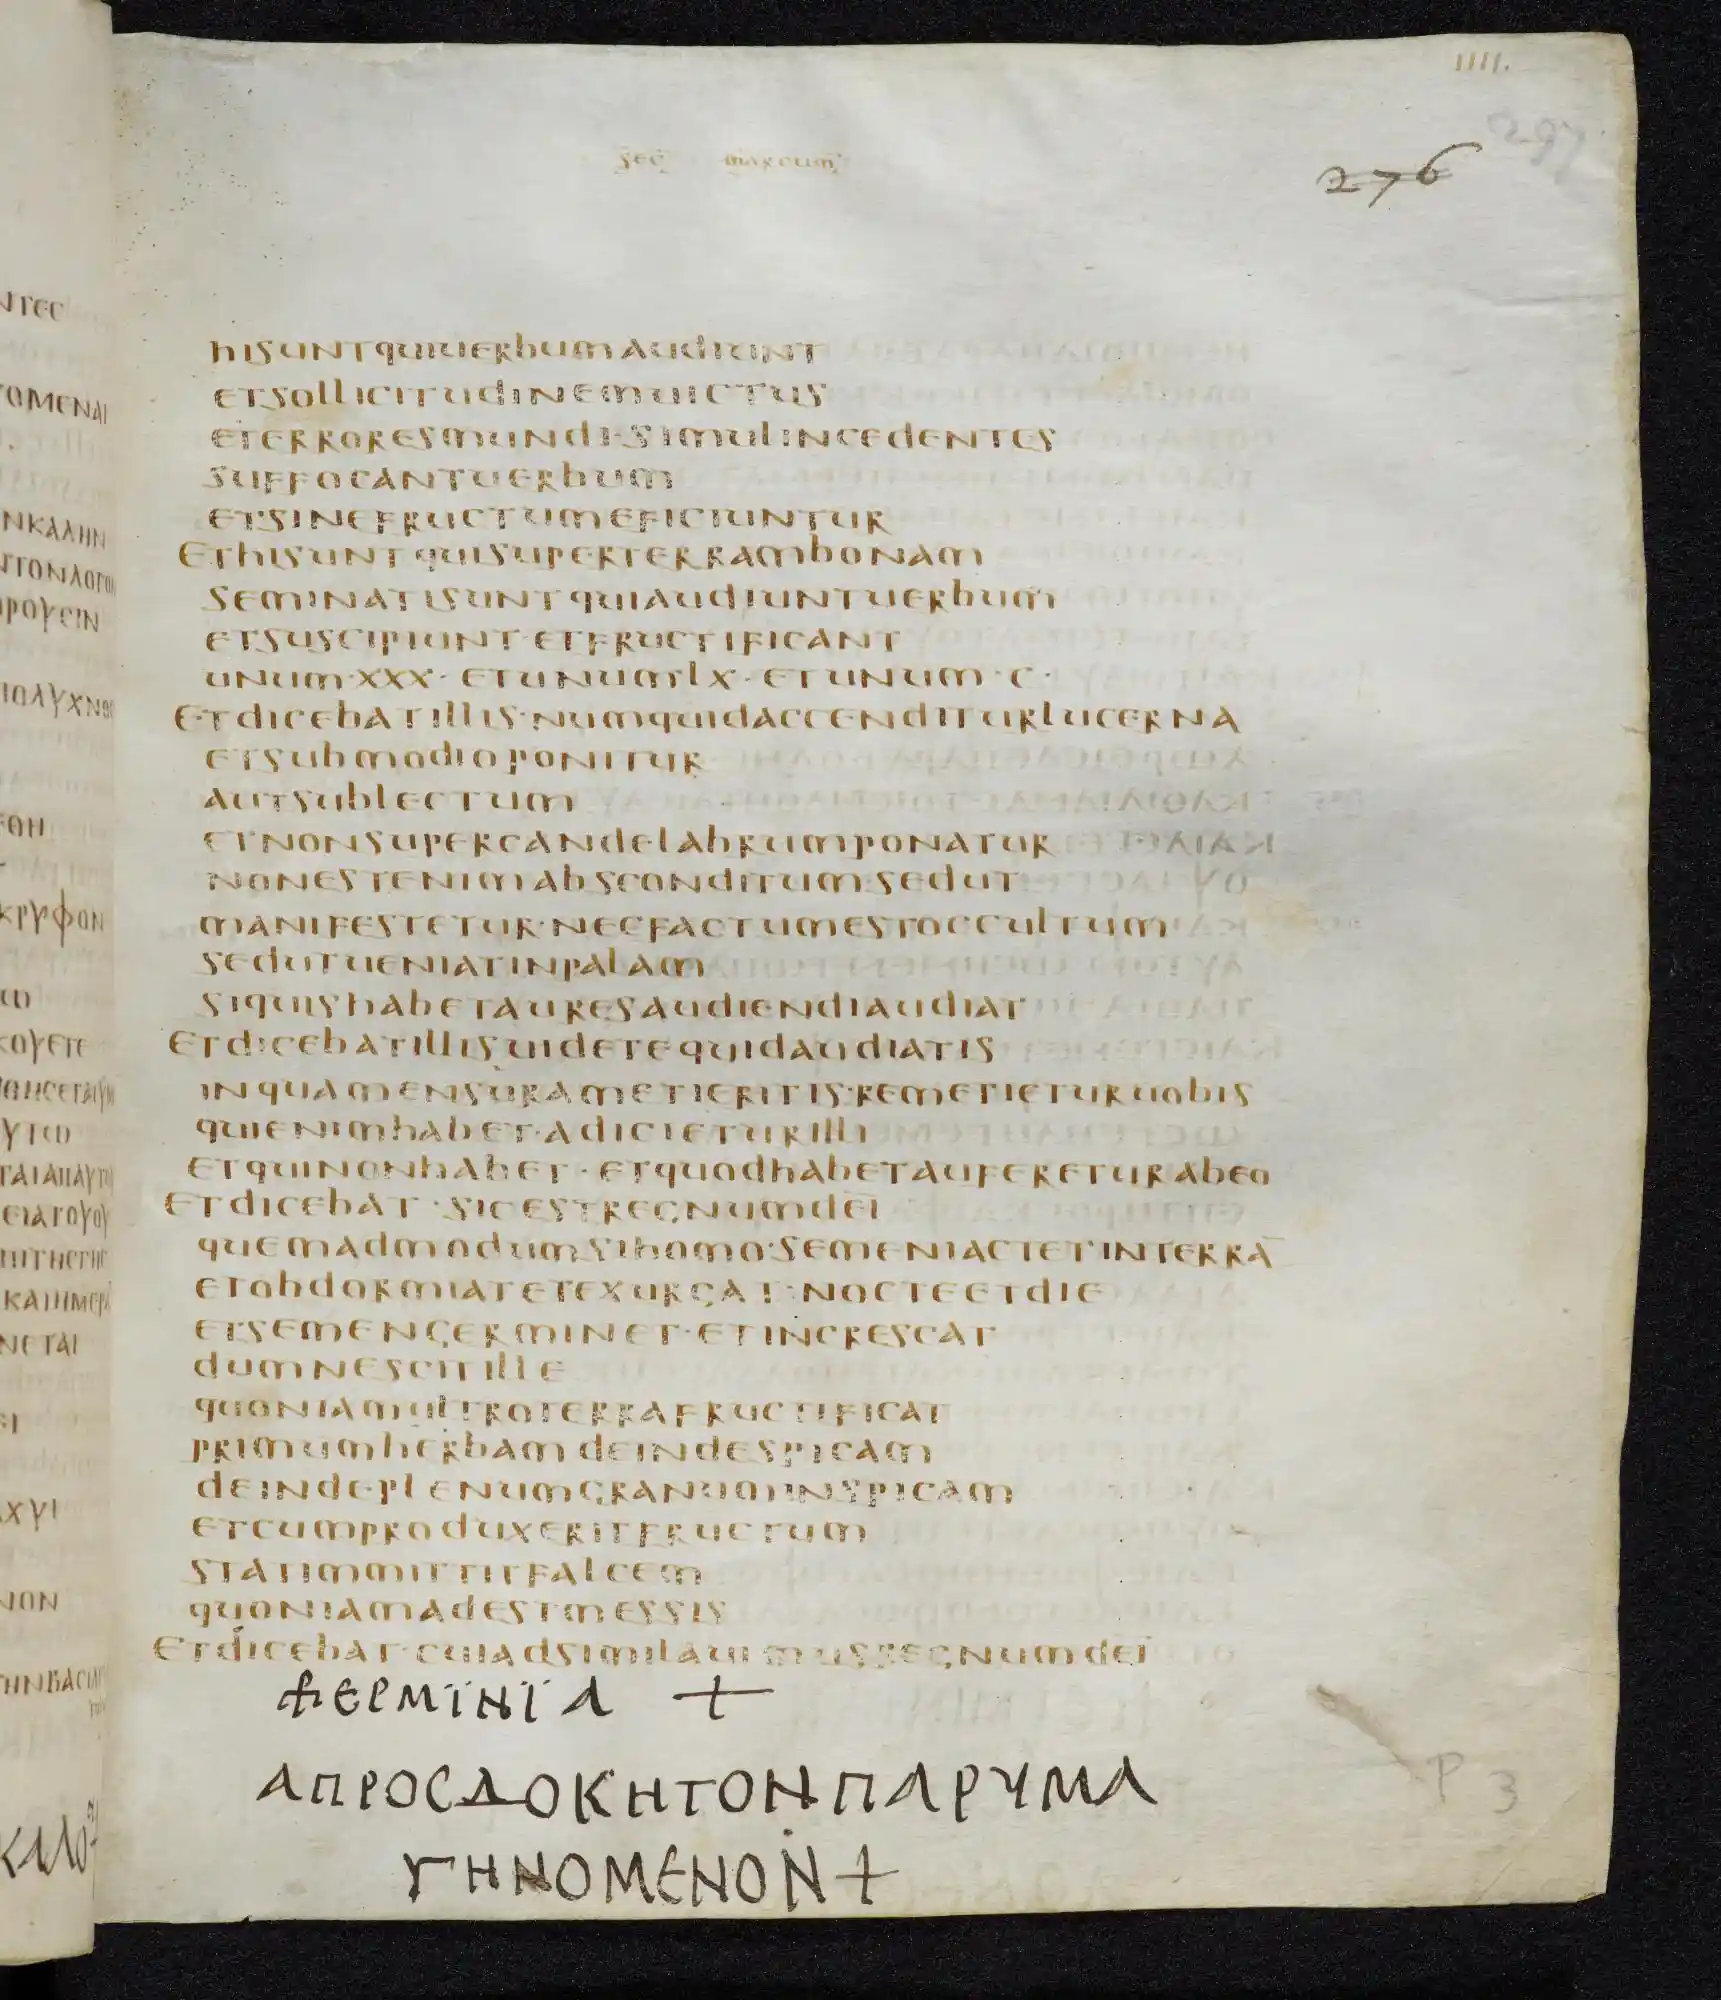 IIII.
297
276
sec marcum
hisuntquiuerbumaudiunt
etsollicitudinemuictus
eterroresmundi·simulincedentes
suffocantuerbum
etsinefructumeficiuntur
Ethisuntquisuperterrambonam
seminatisuntquiaudiuntuerbum
etsuscipiunt·etfructificant
unum·xxx·etunum·lx·etunum·c·
Etdicebatillis·numquidaccenditurlucerna
etsubmodioponitur
autsublectum
etnonsupercandelabrumponatur
nonestenimabsconditum·sedut
manifestetur·necfactumestoccultum
sedutueniatinpalam
siquishabetauresaudiendiaudiat
Etdicebatillisuidetequidaudiatis
inquamensurametieritis·remetieturuobis
quienimhabet·adicieturilli
etquinonhabet·etquodhabetaufereturabeo
Etdicebat·sicestregnumdei
quemadmodumsihomo·semeniactet·interrā
etobdormiatetexurgat·nocteetdie
etsemengerminet·etincrescat
dumnescitille
quoniamultroterrafructificat
primumherbamdeindespicam
deindeplenumgranuminspicam
etcumproduxeritfructum
statimmittitfalcem
quoniamadestmessis
Etdicebat·cuiadsimilauimusregnumdei
ϯερμϊνϊα +
απροσδοκητονπαρυμα
γηνομενον+
P 3
ΝΤΕΣ
ΟΜΕΝΑΙ
ΝΚΑΛΗΝ
ΤΟΝΛΟΓΟ
ΡΟΥΣΙΝ
ΙΟΛΥΧΝΟΣ
ΚΡΥΦΟΝ
ΚΟΥΕΤΕ
ΝΕΤΑΙ
ΑΧΥΙ
ΝΟΝ
ΗΝΒΑΣΙΛ